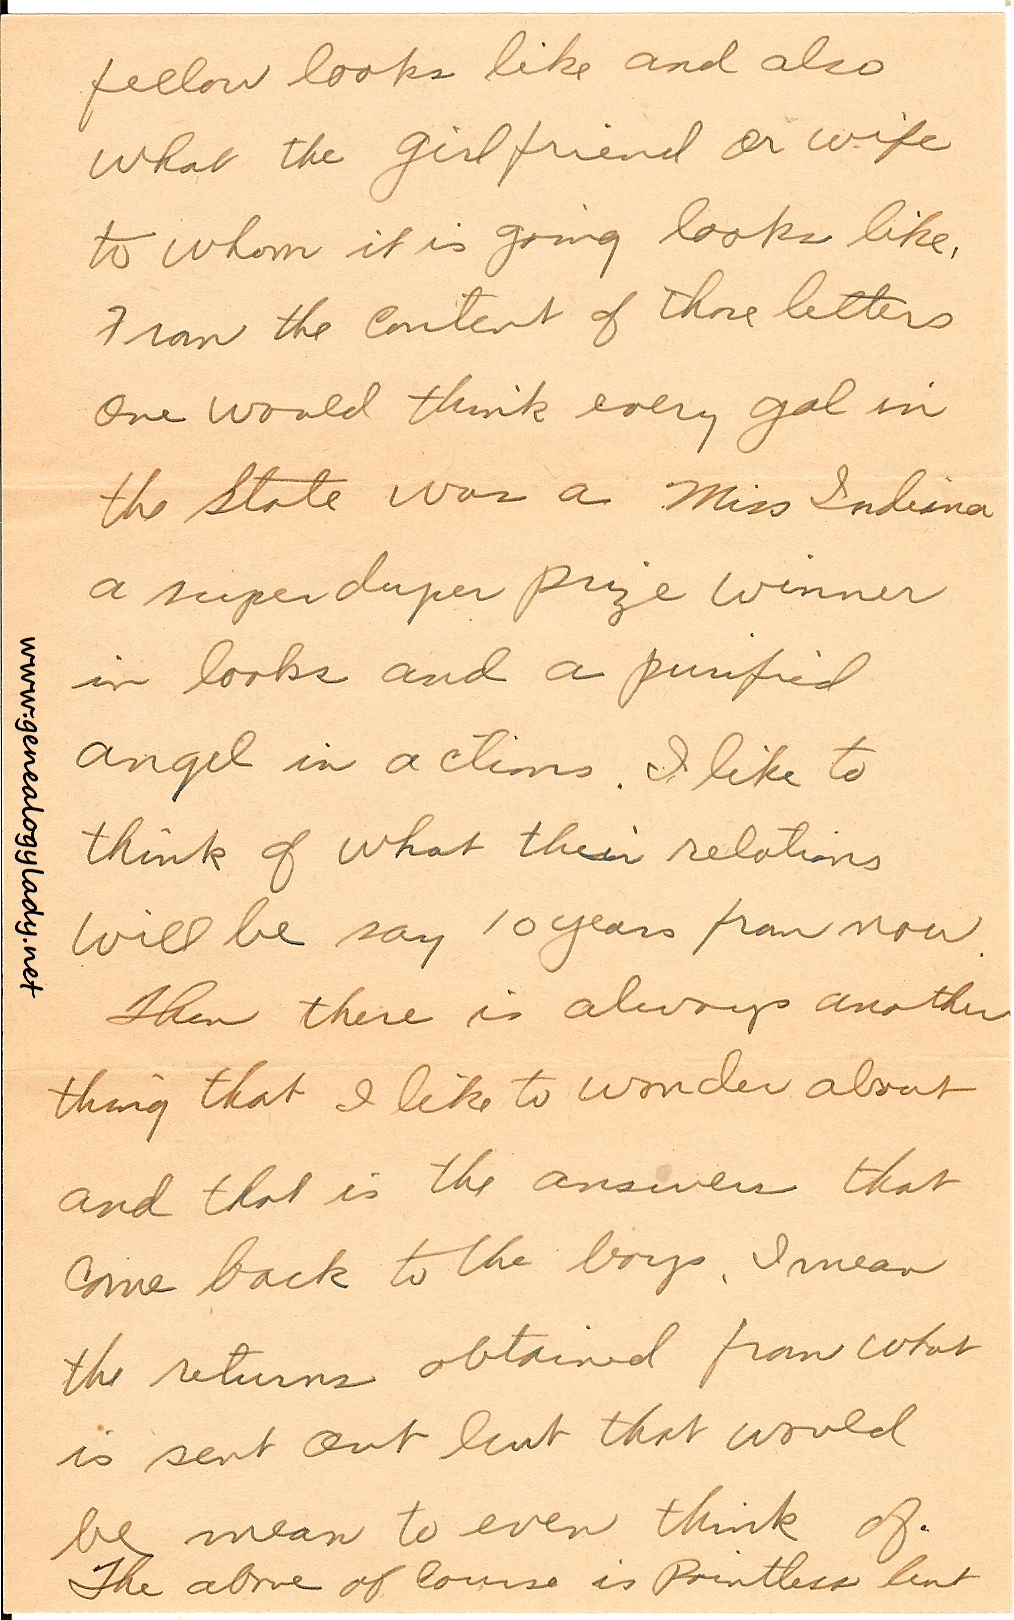 fellow looks like and also
what the girlfriend or wife
to whom it is going looks like.
From the content of those letters
one would think every gal in
the State was a Miss Indiana
a super duper prize winner
in looks and a purified
angel in actions. I like to
think of what their relations
will be say 10 years from now.
Then there is always another
thing that I like to wonder about
and that is the answers that
come back to the boys. I mean
the returns obtained from what
is sent out but that would
be mean to even think of.
The above of course is pointless but
www.genealogylady.net